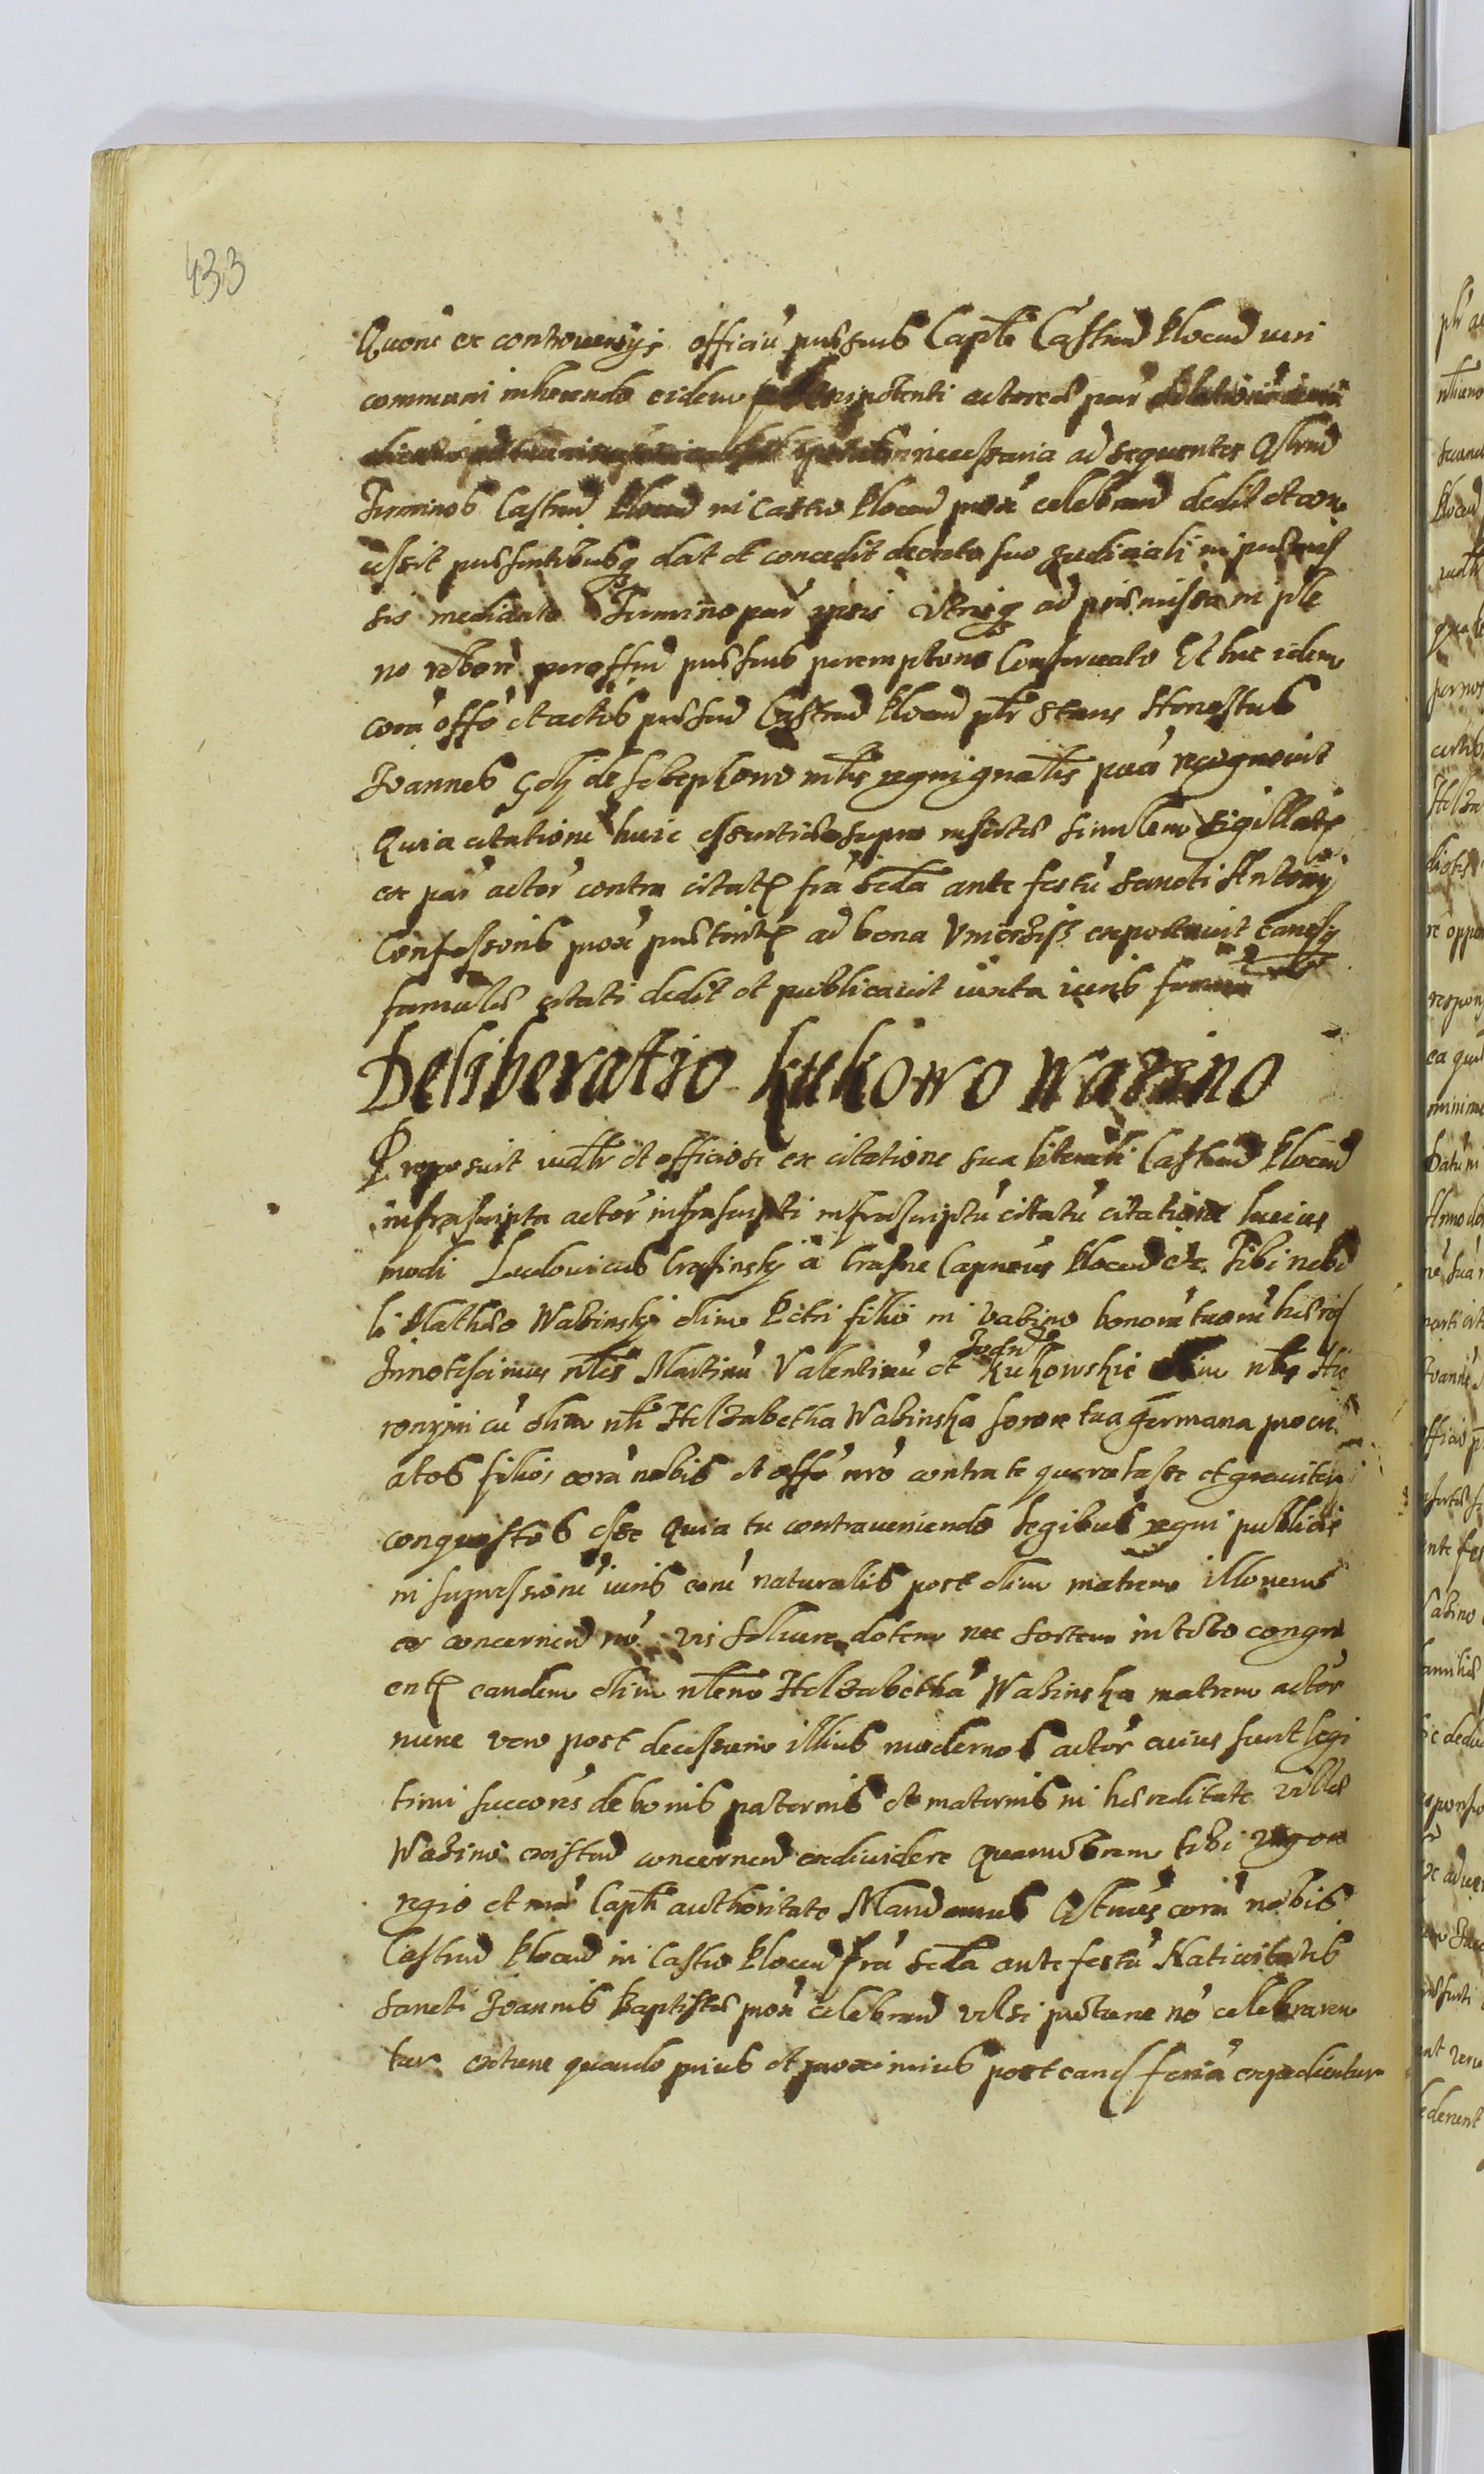 433
Quoru ex controversyis officiu pnsens Caple Castren Plocen iuri
communi inherendo eidem impotenti actorea par
necessaria ad sequentes Qstren
Terminos Castren Plocen in Castro Plocen prox celebran dedit et con
cessit pnsentibusq dat et concedit decreto suo Judiciali in pnmis
sis mediante Termino par ipsis utrisq ad premissa in ple
no robore per offm pnsens peremptorie Conservato Et hic idem
cora offo et actis pnsen Castren Plocen plr stans Honestus
Joannes de mlis regni gnalis pca recognovit
Quia citatione huic insertis similem sigillatp
ex par actor contra citatp fra scda ante festu Sancti Antony
Confessoris prox pnteritp ad bona exportavit eanqsq
familie citati dedit et publicavit iuxta iuris forma
Deliberatio Kukowo Wabino
Proposuit iudlr et officiose ex citatione sua literali Castren Plocen
infrascripta actor infrascripti infrascriptu citatu citatione huius
modi Ludovicus Crasinsky a Crasne Capneus Plocen etc. Tibi nobi
li Matheo Wabinsky olim Petri filio in Vabino bonoru tuoru heredi
Innotescimus nles Martinu Valentinu et Joane Kukowskie olim nlis Hie
ronymi cu olim nli Helzabetha Wabinska sorore tua germana procre
atos filios cora nobis et offo nro contra te querelasse et graviter
conquestos esse Quia tu contraveniendo legibus regni publicis
in supressione iuris eoru naturalis post olim matrem illorum
es concernen no vis solvere dotem nec sortem in toto congru
entp eandem olim nlem Helzabetha Wabinska matrem actor
nunc vero post decessum illius modernos actor cuius sunt legi
timi succors de bonis paternis et maternis in hereditate ville
Wabino existen concernen exdividere Quamobrem tibi vigore
regio et nra Capli authoritate Mandamus Qtenus cora nobis
Castren Plocen in Castro Plocen fra scda ante festu Nativitatis
Sancti Joannis Baptiste prox celebran vel si pretunc no celebraren
tur extunc quando prius et proximius post eand feria expedientur